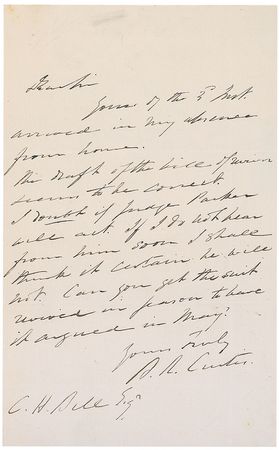 Dear Sir
Yours of the 3d Inst.
arrived in my absence
from home.
The draft of the bill of revivor
seems to be correct.
I doubt if Judge Parker
will act. If I do not hear
from him soon I shall
think it certain he will
not. Can you get the suit
revived in season to have
it argued in May?
Yours truly
B. R. Curtis.
C. H. Bell Esqr